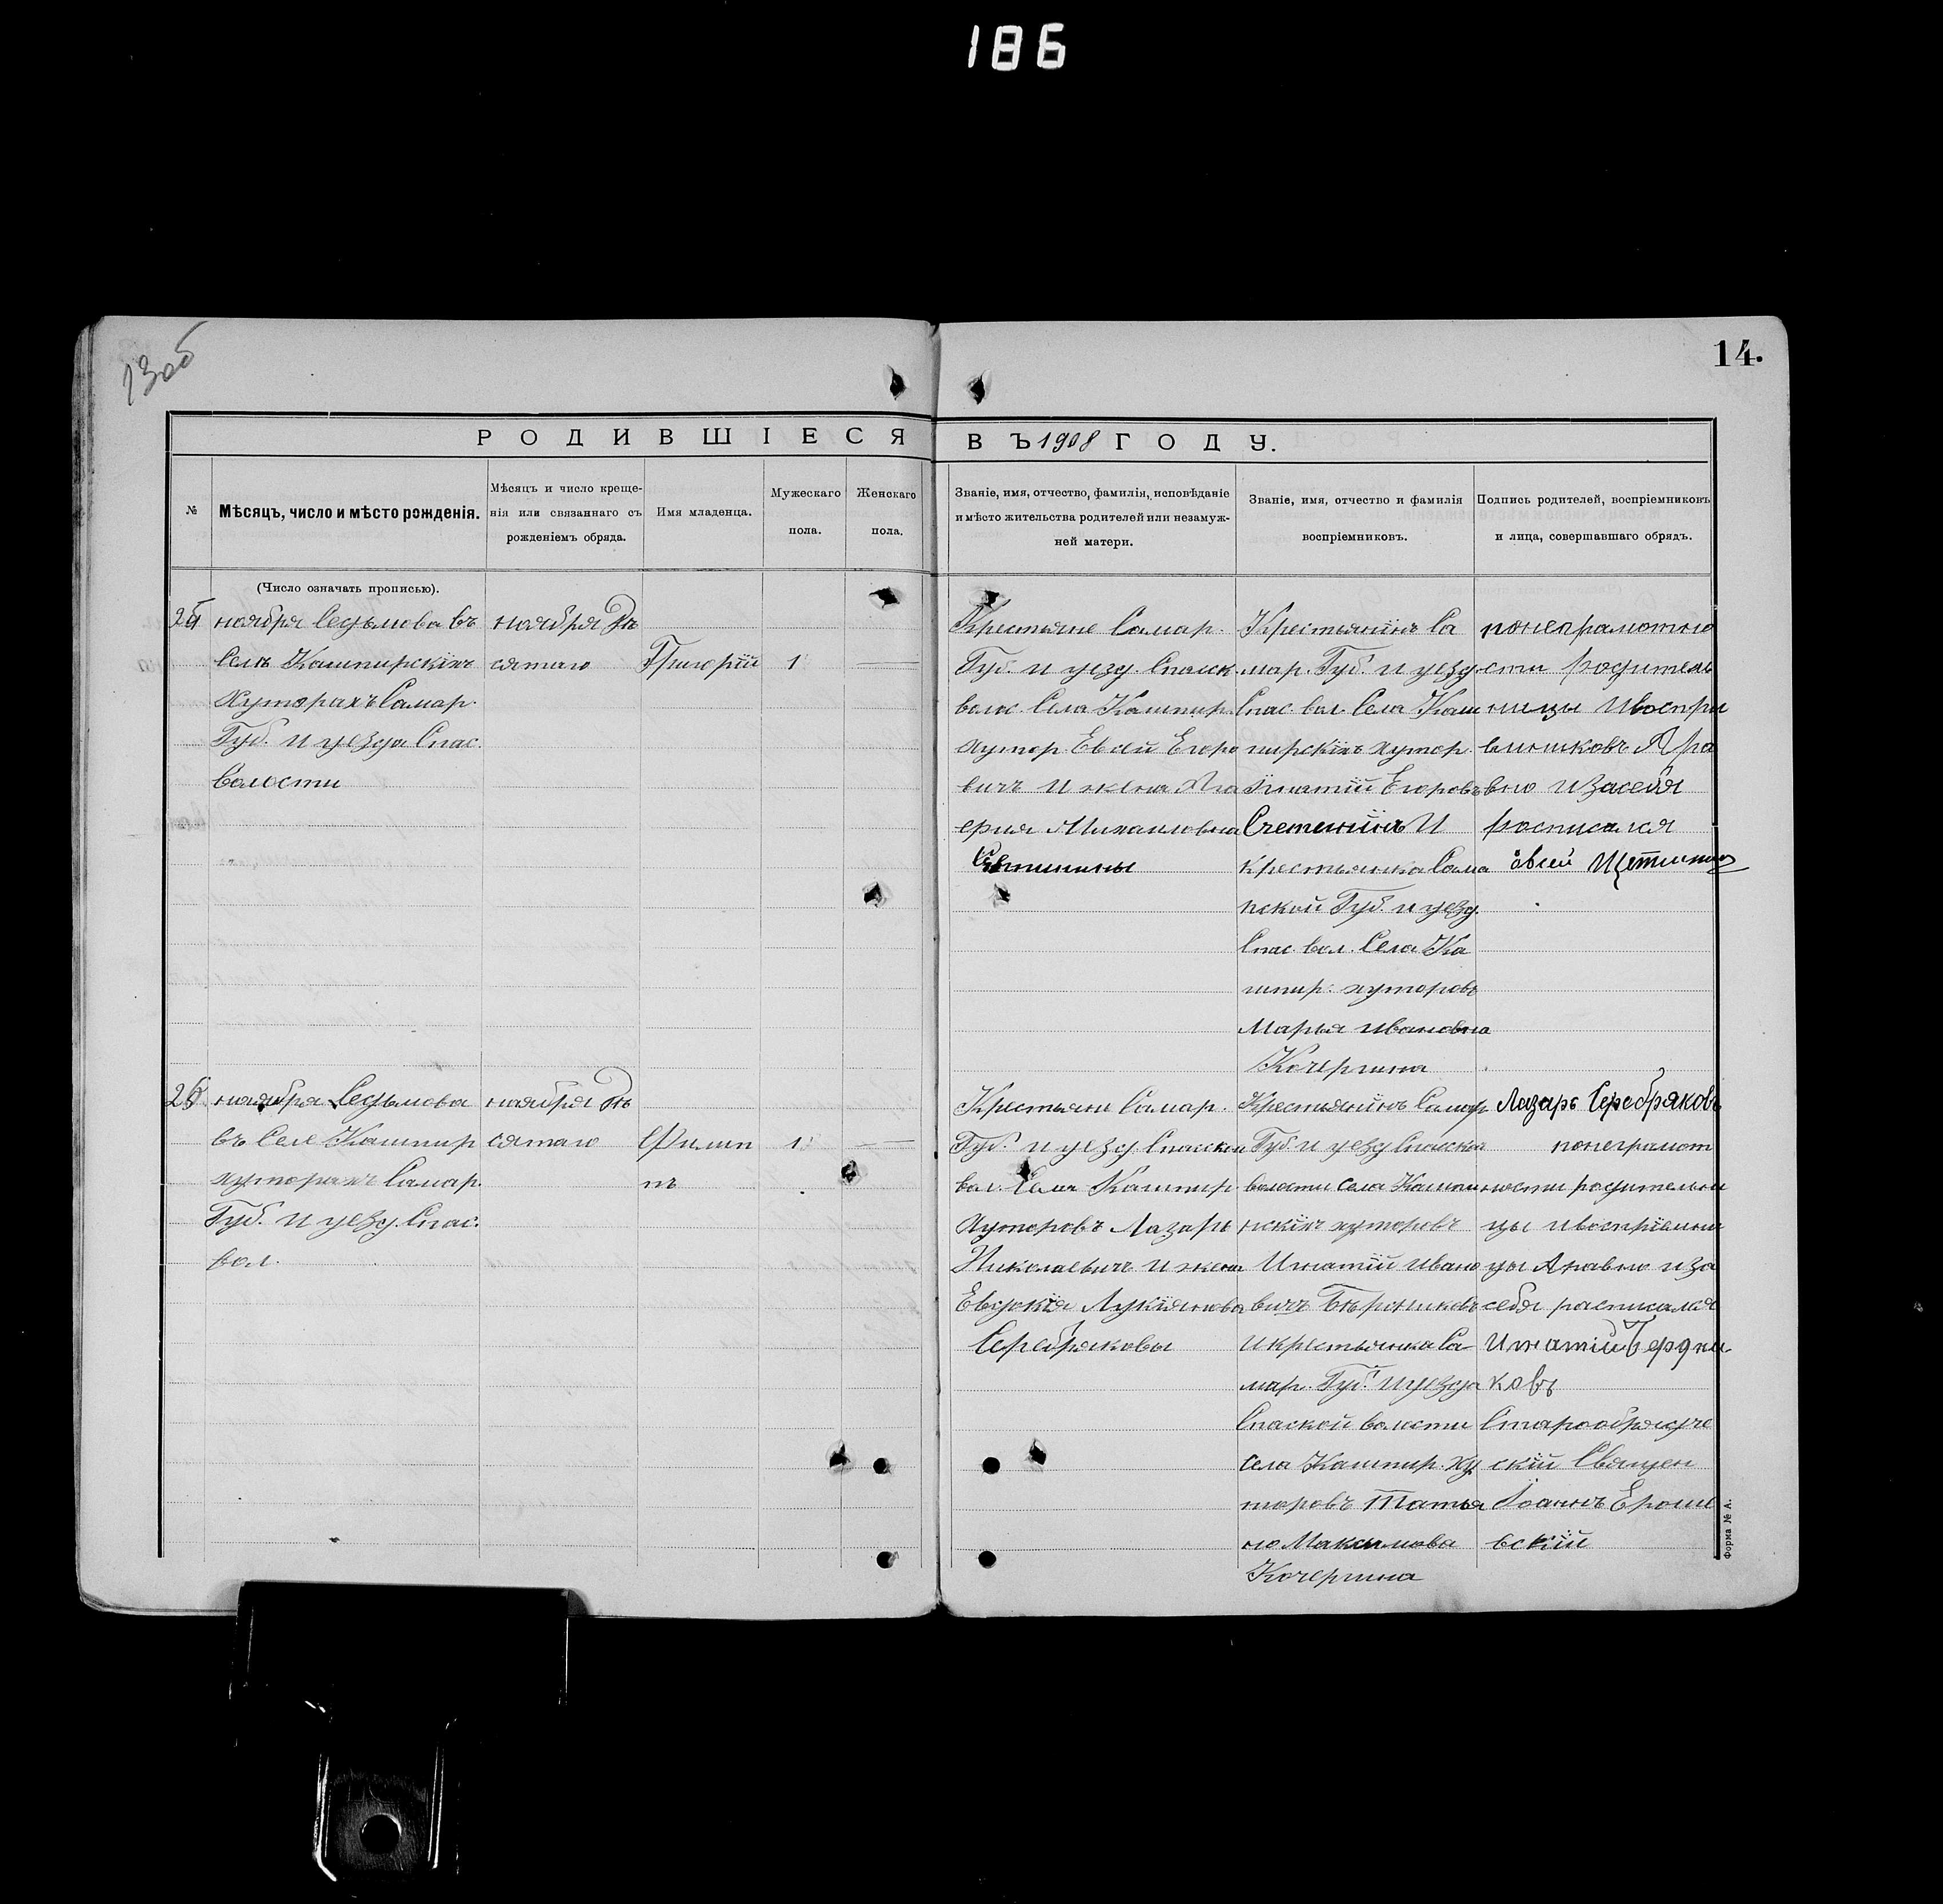 186
13об
14.
РОДИВШІЕСЯ ВЪ 1908 ГОДУ.
№
Мѣсяцъ, число и мѣсто рожденія.
Мѣсяцъ и число креще-
нія или связаннаго съ
рожденіемъ обряда.
Имя младенца.
Мужескаго
пола.
Женскаго
пола.
Званіе, имя, отчество, фамилія, исповѣданіе
и мѣсто жительства родителей или незамуж-
ней матери.
Званіе, имя, отчество и фамилія
воспріемниковъ.
Подпись родителей, воспріемниковъ
и лица, совершавшаго обрядъ.
(Число означать прописью).
ноября Седьмова въ
Селѣ Кашпирскихъ
Хуторахъ Самар.
Губ. и уезда Спас.
Волости
ноября Де
сятаго
Григорій
1
Крестьяне Самар.
Губ. и уезду Спасск.
волос. Села Кашпир.
хутор. Евсей Егоро
вичъ и жена
Михаиловна
Щетинины
Крестьянинъ Са
мар. Губ. и уезду
Спас. вол. Села Каш
пирскихъ хутор.
Игнатій Егоровъ
Счетининъ И
крестьянка Сама
рской Губ. и уезду.
Спас. вол. Села Ка
шпир. хуторовъ
Марья ивановна
Кочергина
понеграмотно
сти родитель
ницы Ивоспри
емниковъ
вно изасебя
росписался
Щетининъ
26
ноября Седьмова
въ Селе Кашпир
хуторахъ Самар.
Губ. и уезду. Спас.
вол.
ноября Де
сятаго
Филип
пъ
1
Крестьяни Самар.
Губ. и уезду Спасской
вол. Села Кашпир
Хуторовъ Лазарь
Николаевичъ и жена
Евдокія Лукіянова
Серебряковы
Крестьянинъ Самар
Губ. и уезду Спасской
волости села Кашпи
рскихъ хуторовъ
Игнатій ивано
вичъ
и крестьянка Са-
мар. Губ. и уезда
Спаской волости
села Кашпир. ху
торовъ Татья
но Максимова
Кочергина
Лазарь Серебряковъ
понеграмот
ности родительни
цы ивоспріемни
цы и за
себя расписался
Игнатій Бердни
ковъ
Старообрядче
скій Священ
Іоаннъ
вскій
Форма № А.